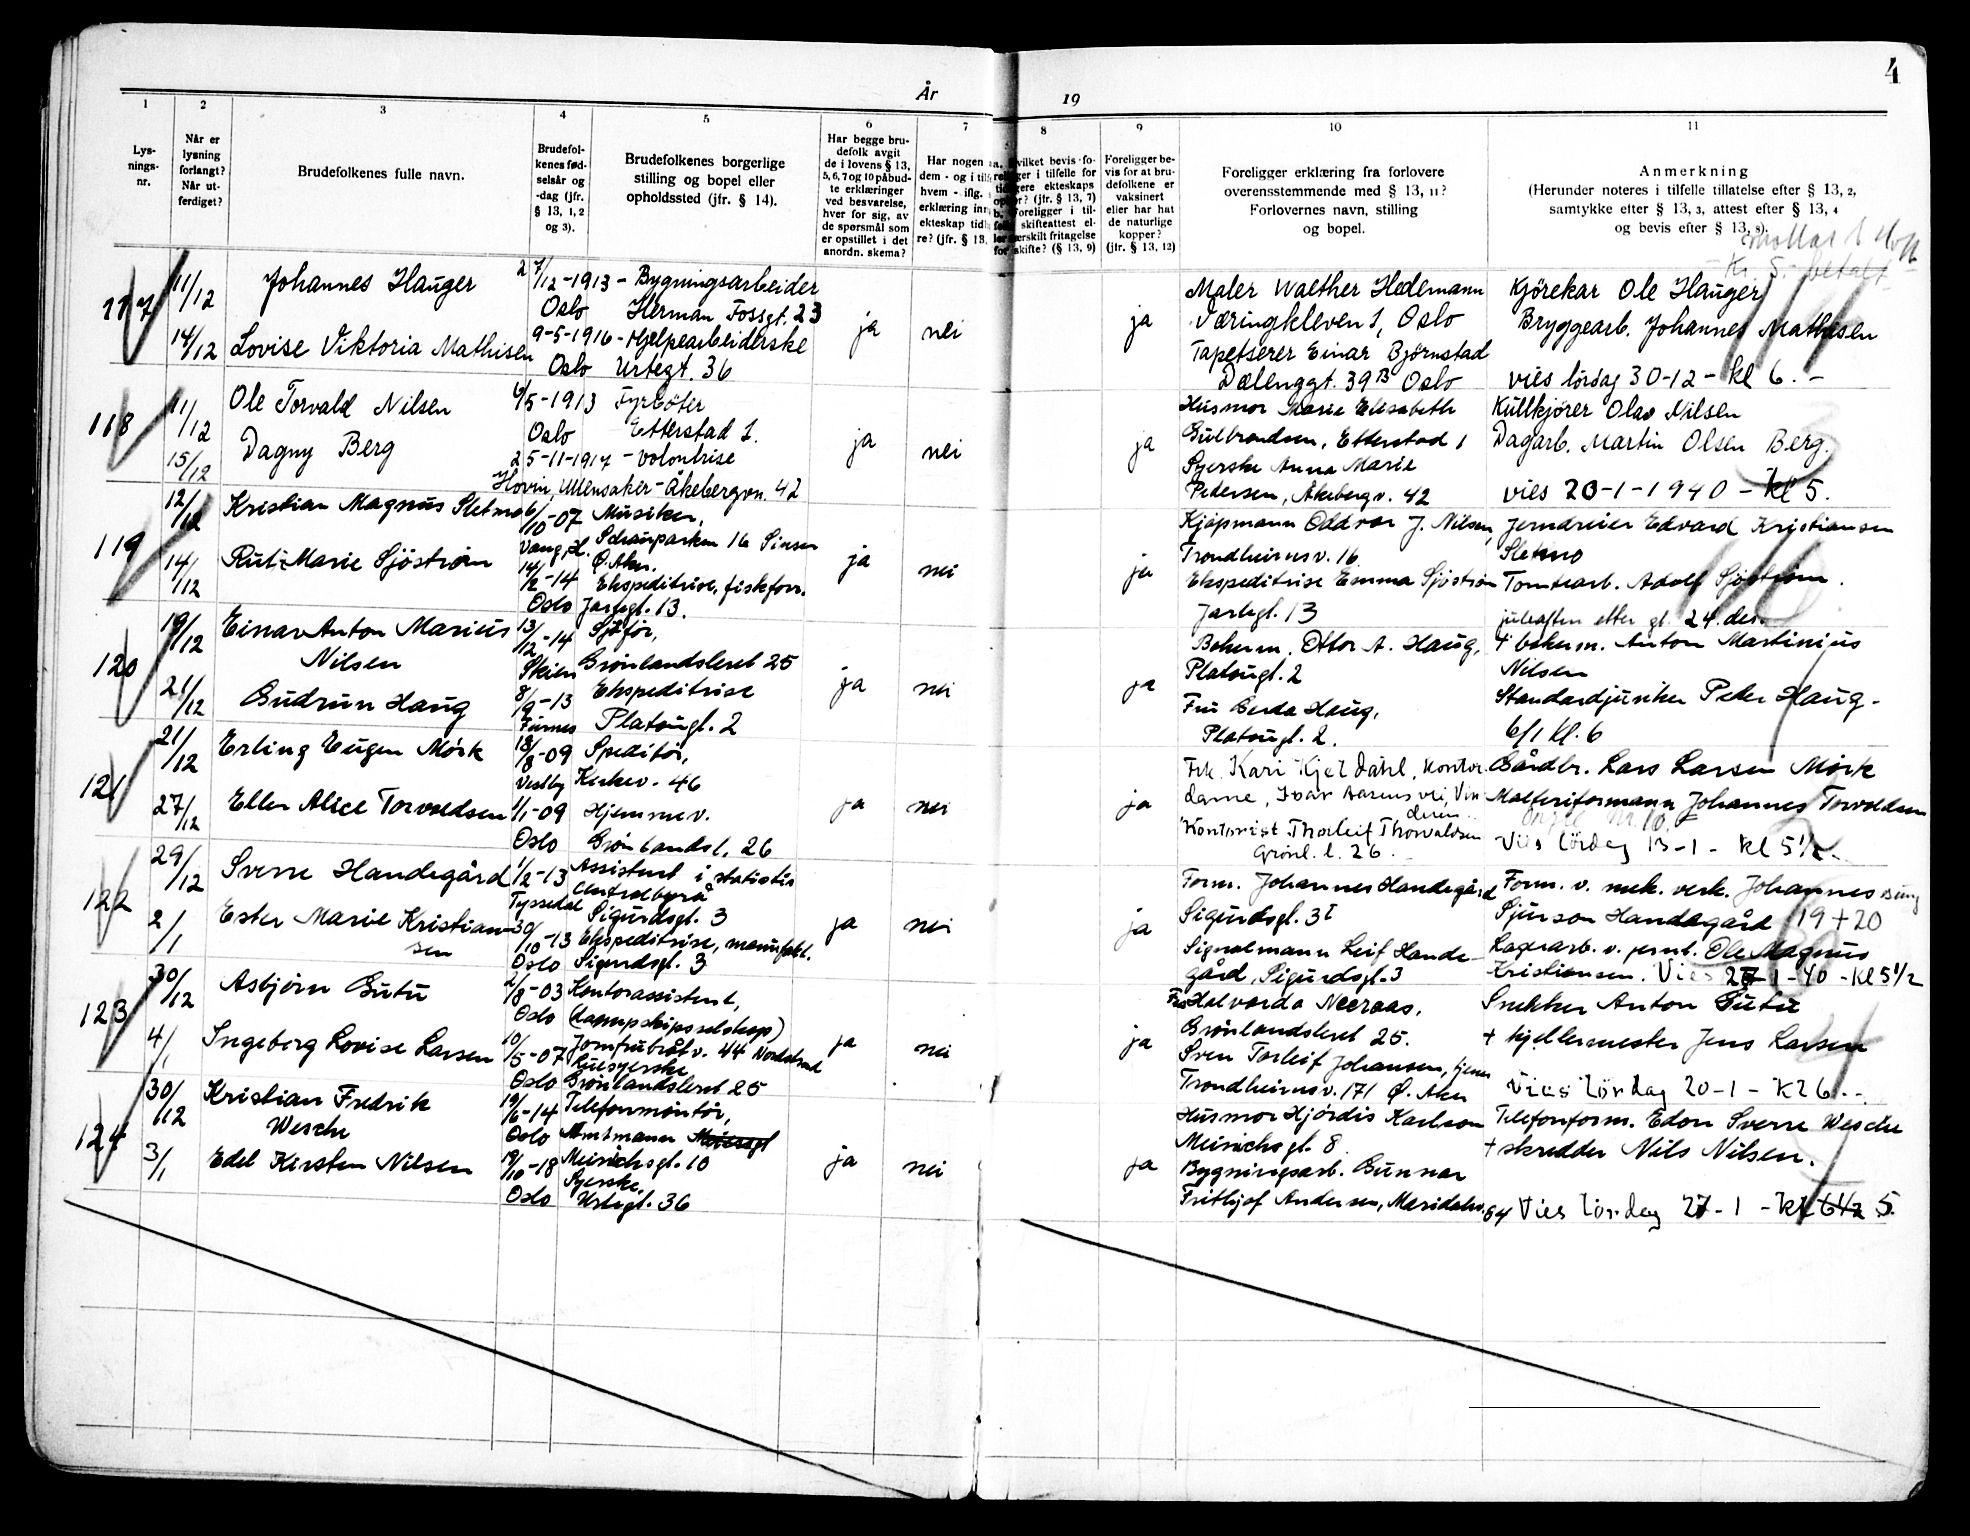 4
År
19
1
2
3
4
5
6
7
8
9
10
11
Lys-
nings-
nr.
Når er
lysning
forlangt?
Når ut-
ferdiget?
Brudefolkenes fulle navn.
Brudefol-
kenes fød-
selsår og
-dag (jfr.
§ 13, 1, 2
og 3).
Brudefolkenes borgerlige
stilling og bopel eller
opholdssted (jfr. § 14).
Har begge bru-
defolk avgit
de i lovens § 13,
5, 6, 7 og 10 påbud-
te erklæringer
ved besvarelse,
hver for sig, av
de spørsmål som
er opstillet i det
anordn. skema?
Har nogen
dem - og i tilf
hvem - iflg.
erklæring inn
ekteskap tid
re? (jfr. § 13,
hvilket bevis fo-
religger i tilfelle for
tidligere ekteskaps
ophør? (jfr. § 13, 7)
b. Foreligger i til-
felle skifteattest el-
ler særskilt fritagelse
for skifte? (§ 13, 9)
Foreligger be-
vis for at bru-
defolkene er
vaksinert
eller har hat
de naturlige
kopper?
(jfr. § 13, 12)
Foreligger erklæring fra forlovere
overensstemmende med § 13, 11?
Forlovernes navn, stilling
og bopel.
Anmerkning
(Herunder noteres i tilfelle tillatelse efter § 13, 2,
samtykke efter § 13, 3, attest efter § 13, 4
og bevis efter § 13, 8).
Kr. 5.- betalt
117
11/12
14/12
Johannes Hauger
Lovise Viktoria Mathisen
27/12-1913 - Bygningsarbeider
Oslo Herman Fossgt. 23
9-5-1916 - Hjelpearbeiderske
Oslo Urtegt. 36
ja
nei
ja
Maler Walther Hedemann
Væringkleven 1, Oslo
Tapetserer Einar Bjørnstad
Dælenggt. 39 B Oslo
Kjørekar Ole Hauger
Bryggearb. Johannes Mathisen
vies lördag 30-12 - kl 6. -
118
11/12
15/12
Ole Torvald Nilsen
Dagny Berg
6/5-1913 Fyrbøter
Oslo Etterstad 1.
25-11-1917 - volontrise
Hovin, Ullensaker - Åkebergvn. 42
ja
nei
ja
Husmor Marie Elisabeth
Gulbrandsen, Etterstad 1
Syerske Anna Marie
Pedersen, Åkebergv. 42
Kullkjører Olav Nilsen
Dagarb. Martin Olsen Berg.
vies 20-1-1940 - kl 5.
119
12/12
14/12
Kristian Magnus Sletmo
Rut-Marie Sjöström
6/10-07 Musiker,
Vang, H. Schouparken 16 Sinsen
Ø. Aker.
14/2-14 Ekspeditrise, fiskforr.
Oslo Jarlegt. 13.
ja
nei
ja
Kjøpmann Oddvar J. Nilsen,
Trondheimsv. 16
Ekspeditrise Emma Sjöström
Jarlegt. 13
Jerndreier Edvard Kristiansen
Sletmo
Tomtearb. Adolf Sjöström.
juleaften etter gt. 24. des.
120
19/12
21/12
Einar Anton Marius
Nilsen
Gudrun Haug
13/12-14 Sjåfør,
Skien Grønlandsleret 25
8/9-13 Ekspeditrise
Furnes Platougt. 2
ja
nei
ja
Bokerm. Ottor A. Haug,
Platougt. 2
Fru Berda Haug,
Platougt. 2.
+ bokerm. Anton Martinius
Nilsen
Standardjunker Peter Haug -
6/1 kl. 6
121
21/12
27/12
Erling Eugen Mörk
Ellen Alice Torvaldsen
18/8-09 Speditør,
Vestby Kirkev. 46
1/1-09 Hjemmev.
Oslo Grønlandsl. 26
ja
nei
ja
Frk. Kari Kjeldahl, Kontor
dame, Ivar Aasens vei, Vin
deren.
Kontorist Thorleif Thorvaldsen
Grønl. l. 26.
Gårdbr. Lars Larsen Mörk
Malteriformann Johannes Torvaldsen
Vies lördag 13-1 - kl 5 1/2.
122
29/12
2/1
Sverre Handegård
Ester Marie Kristian-
sen
1/2-13 Assistent i statistis
Tyssedal Centralbyrå
Sigurdsgt. 3
30/10-13 Ekspeditrise, manufakt.
Oslo Sigurdsgt. 3
ja
nei
ja
Form. Johannes Handegård
Sigurdsgt. 3 I
Signalmann Leif Hande-
gård, Sigurdsgt. 3
Form. v. mek. verk. Johannes
Sjurson Handegård 19+20
Lagerarb. v. jernb. Ole Magnus
Kristiansen. Vies 27-1-40 - Kl 5 1/2
123
30/12
4/1
Asbjørn Gutu
Ingeborg Lovise Larsen
2/8-03 Kontorassistent,
Oslo (dampskipsselskap)
Jomfrubråtv. 44 Nordstrand
10/5-07 Luesyerske
Oslo Grønlandsleret 25
ja
nei
ja
Fru Halvarda Neeraas,
Grønlandsleret 25.
Sven Torleif Johansen,
Trondheimsv. 171 Ø. Aker
Snekker Anton Gutu
+ kjellermester Jens Larsen
Vies lördag 20-1 - Kl 6.
124
30/12
3/1
Kristian Fredrik
Wesche
Edel Kirsten Nilsen
19/6-14 Telefonmontør,
Oslo Amtmann
Meinichsgt. 10
19/10-18 Syerske,
Oslo Urtegt. 36
ja
nei
ja
Husmor Hjördis Karlson
Meinichsgt. 8
Bygningsarb. Gunnar
Frithjof Andersen, Maridalsv. 64
Telefonform. Edon Sverre Wesche
+ skredder Nils Nilsen.
Vies lördag 27-1 - kl 6 1/2 5.